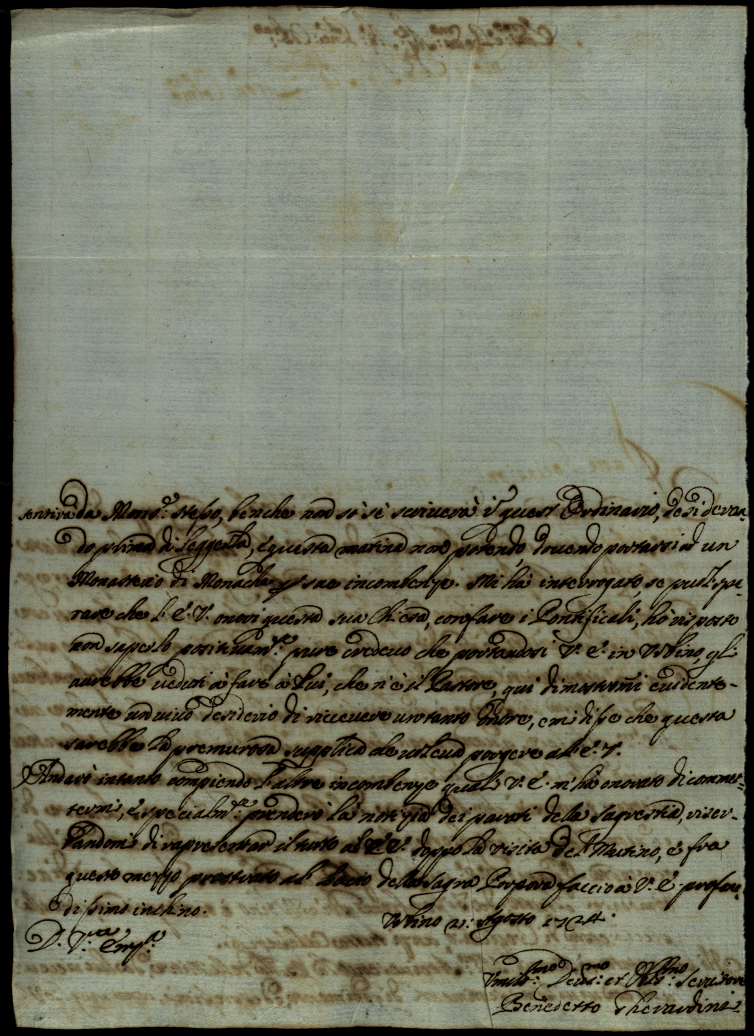 sentirà da Mons.r stesso, benche non sò se scriverà in quest'Ordinario, desideran-
do prima di Leggerla, e questa matina non potendo, dovendo portarsi ad un
Monastero di Monache p sue incombenze. Mi hà interrogato, se puol spe-
rare che l'E. V. onori questa sua Chiesa, co'l fare i Pontificali, hò risposto
non saperlo positivam.te pure credevo che portandosi V. E. in Urbino, gli
avrebbe veduti à fare à Lui, che n'è il Pastore, qui dimostrom̃i evidente-
mente un vivo desiderio di ricevere un tanto Onore, e mi disse che questa
sarebbe la premurosa supplica che voleva porgere all'E. V.
Andarò intanto compiendo l'altre incombenze quali V. E. m'hà onorato di commet-
termi, e specialm.te prenderò la notizia dei parati della Sagrestia, riser-
vandomi di rapresentar il tutto all'E. V. doppo la visita del Mutino, e fra
questo mezzo prostrato al Bacio della Sagra Porpora faccio à V. E. profon-
dissimo inchino.
Urbino 21: Agosto 1724.
D. V.ra Em.za
Umilis.mo Devs.mo et Obl.mo Servitore
Benedetto Gherardini